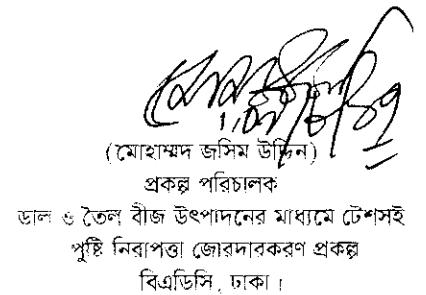 (মোহাম্মদ জসিম উদ্দিন)
প্রকল্প পরিচালক
ডাল ও তৈল বীজ উৎপাদনের মাধ্যমে টেশসই
পুষ্টি নিরাপত্তা জোরদারকরণ প্রকল্প
বিএডিসি, ঢাকা।